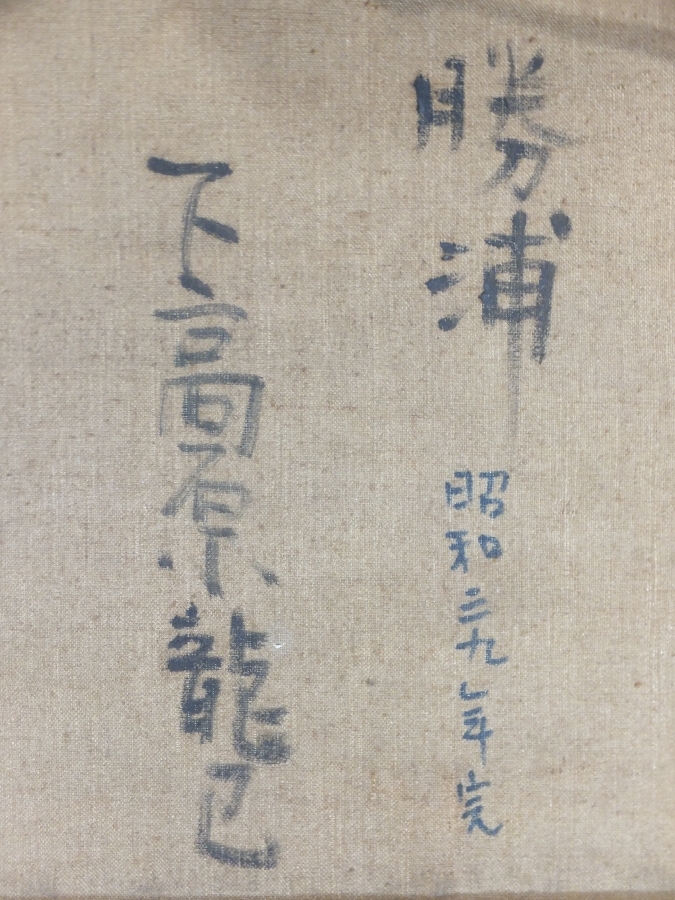 勝浦
昭和三九年完
下高原龍己